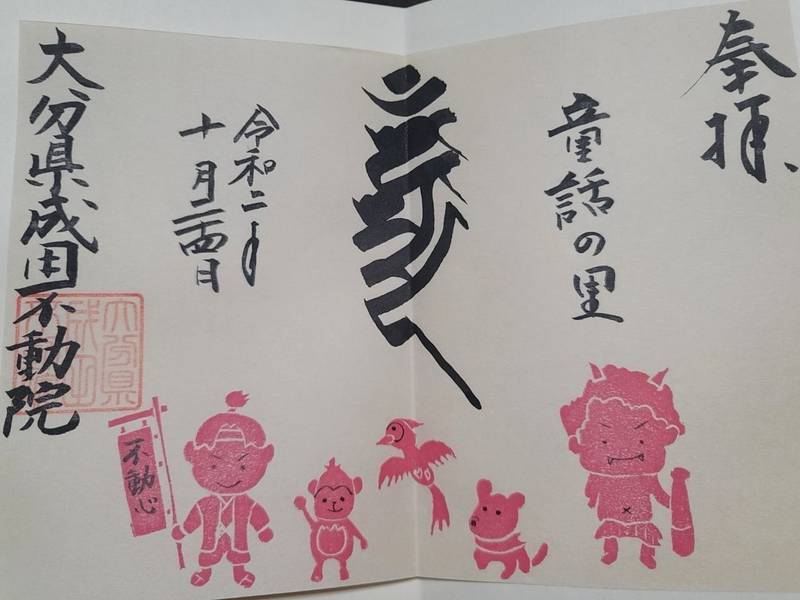 奉拝
童話の里
令和二年
十月二十四日
大分県成田不動院
不動心